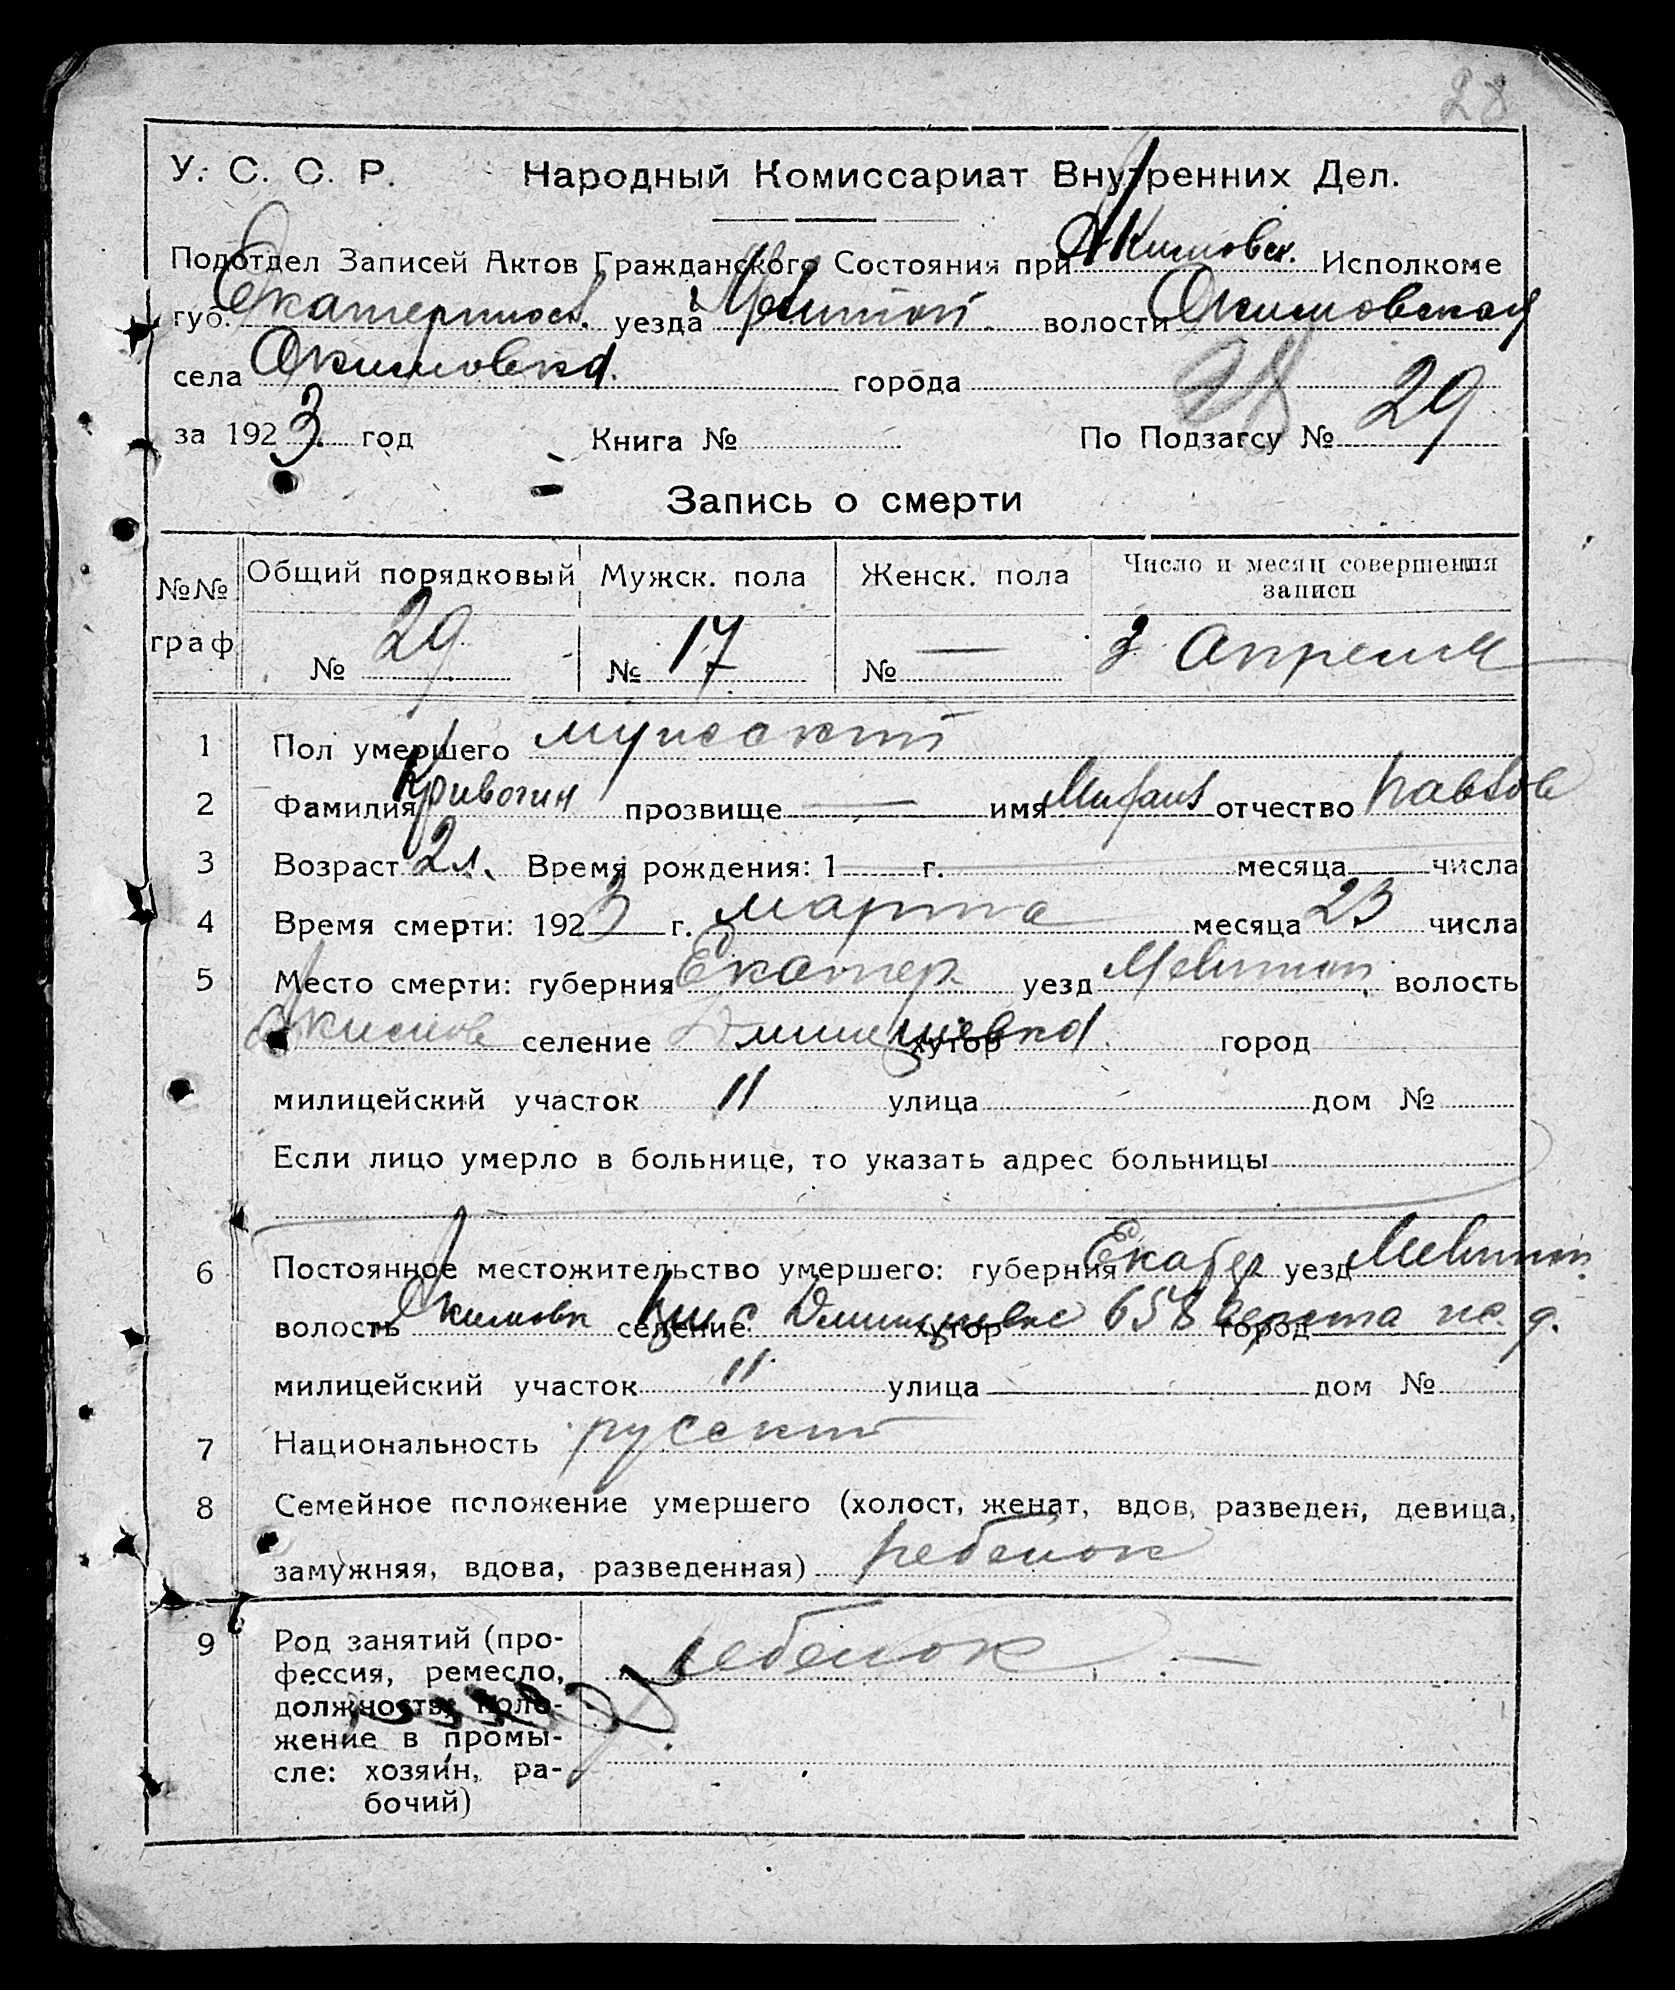 28
У. С. С. Р. Народный Комиссариат Внутренних Дел.
Подотдел Записей Актов Гражданского Состояния при Акимовск. Исполкоме
губ. Екатеринос. уезда Мелитоп. волости Окимовская
села Окимовка. города
28
за 1923 год Книга № По Подзагсу № 29
Запись о смерти
№№ граф Общий порядковый Мужск. пола Женск. пола Число и месяц совершения записи
№ 29 № 17 № — 3 Апреля
1 Пол умершего мужской
2 Фамилия прозвище — имя отчество
3 Возраст 2 л. Время рождения: 1 г. месяца числа
4 Время смерти: 1923 г. марта месяца 23 числа
5 Место смерти: губерния Екатер уезд Мелитоп. волость
Акимов селение хутор город
милицейский участок 11 улица дом №
Если лицо умерло в больнице, то указать адрес больницы
6 Постоянное местожительство умершего: губерния Екатер уезд Мелитоп.
волость Акимовк селение хутор 658 верста город
милицейский участок 11 улица дом №
7 Национальность русский
8 Семейное положение умершего (холост, женат, вдов, разведен, девица,
замужняя, вдова, разведенная) ребенок
9 Род занятий (про- ребенок —
фессия, ремесло,
должность, поло-
жение в промы-
сле: хозяин, ра-
бочий)